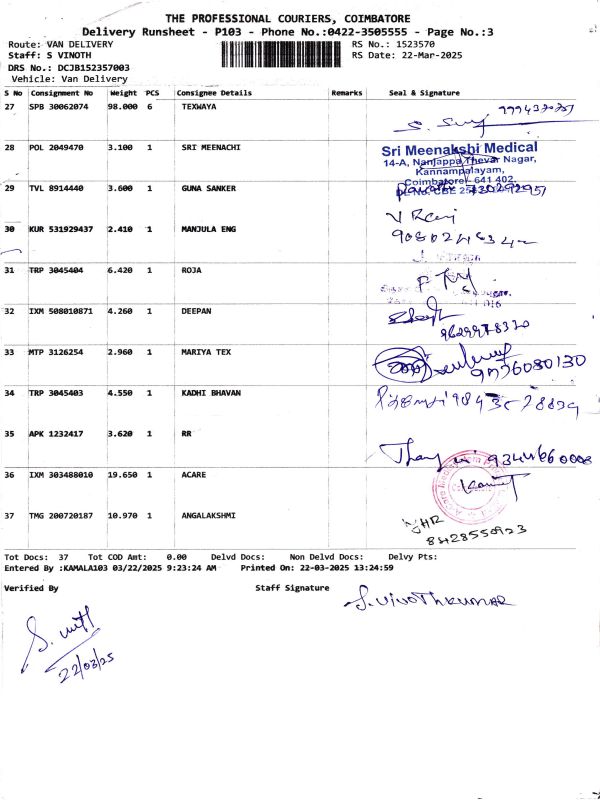 THE PROFESSIONAL COURIERS, COIMBATORE
Delivery Runsheet - P103 - Phone No.:0422-3505555 - Page No.:3
Route: VAN DELIVERY RS No.: 1523570
Staff: S VINOTH RS Date: 22-Mar-2025
DRS No.: DCJB152357003
Vehicle: Van Delivery
S No Consignment No Weight PCS Consignee Details Remarks Seal & Signature
27 SPB 30062074 98.000 6 TEXWAYA
28 POL 2049470 3.100 1 SRI MEENACHI
Sri Meenakshi Medical
14-A, Nanjappa Thevar Nagar,
Kannampalayam,
Coimbatore - 641 402.
29 TVL 8914440 3.600 1 GUNA SANKER
30 KUR 531929437 2.410 1 MANJULA ENG
31 TRP 3045404 6.420 1 ROJA
32 IXM 508010871 4.260 1 DEEPAN
9629978320
33 MTP 3126254 2.960 1 MARIYA TEX
9776080130
34 TRP 3045403 4.550 1 KADHI BHAVAN
35 APK 1232417 3.620 1 RR
9344660008
36 IXM 303488010 19.650 1 ACARE
37 TMG 200720187 10.970 1 ANGALAKSHMI
8428550923
Tot Docs: 37 Tot COD Amt: 0.00 Delvd Docs: Non Delvd Docs: Delvy Pts:
Entered By :KAMALA103 03/22/2025 9:23:24 AM Printed On: 22-03-2025 13:24:59
Verified By Staff Signature
S.VINOTHKUMAR
22/03/25